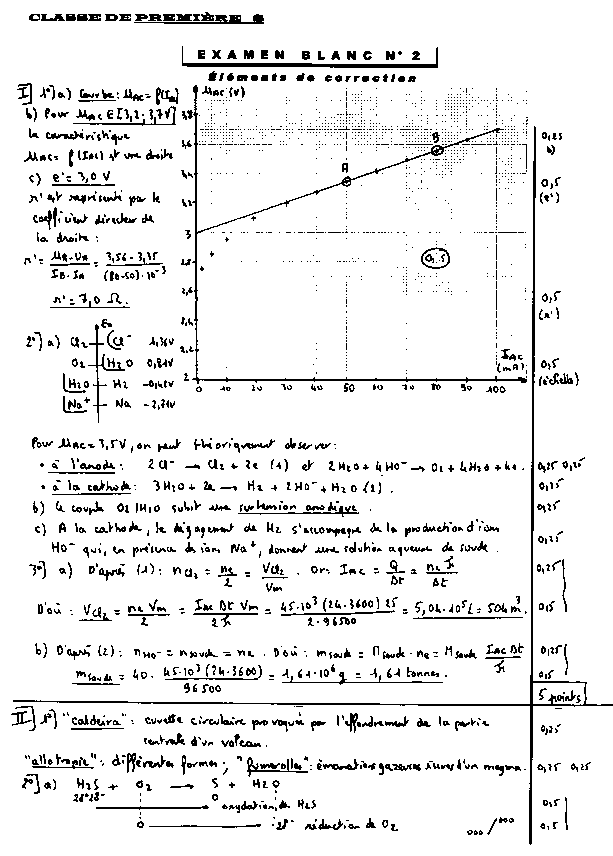 CLASSE DE PREMIÈRE S
EXAMEN BLANC N° 2
Éléments de correction
I 1°) a) Courbe : UAC = f(IAC)
b) Pour UAC ∈ [3,2 ; 3,7V]
la caractéristique
UAC = f(IAC) est une droite
c) e' = 3,0 V
r' est représenté par le
coefficient directeur de
la droite :
r' = UB - UA / IB - IA = 3,56 - 3,35 / (80-50)·10⁻³
r' = 7,0 Ω.
UAC (V)
3,8
3,6
3,4
3,2
3
2,8
2,6
2,4
2,2
2
A
B
0,5
0 10 20 30 40 50 60 70 80 90 100
IAC (mA)
0,25
b)
0,5
(e')
0,5
(r')
0,5
(échelle)
2°) a) E₀
Cl₂ Cl⁻ 1,36V
O₂ H₂O 0,81V
H₂O H₂ -0,41V
Na⁺ Na -2,71V
Pour UAC = 3,5V, on peut théoriquement observer :
• à l'anode : 2Cl⁻ → Cl₂ + 2e (1) et 2H₂O + 4HO⁻ → O₂ + 4H₂O + 4e. 0,25 0,25
• à la cathode : 3H₂O + 2e → H₂ + 2HO⁻ + H₂O (2). 0,25
b) Le couple O₂/H₂O subit une surtension anodique. 0,25
c) A la cathode, le dégagement de H₂ s'accompagne de la production d'ions
HO⁻ qui, en présence de ions Na⁺, donnent une solution aqueuse de soude. 0,25
3°) a) D'après (1) : nCl₂ = ne / 2 = VCl₂ / Vm. Or : IAC = Q / Δt = ne F / Δt 0,25
D'où : VCl₂ = ne Vm / 2 = IAC Δt Vm / 2F = 45·10³ (24·3600) 25 / 2·96500 = 5,04·10⁵L = 504 m³. 0,5
b) D'après (2) : nHO⁻ = nsoude = ne. D'où : msoude = Msoude · ne = Msoude IAC Δt / F 0,25
msoude = 40 · 45·10³ (24·3600) / 96500 = 1,61·10⁶ g = 1,61 tonnes. 0,5
5 points
II 1°) "caldeira" : cuvette circulaire provoquée par l'effondrement de la partie 0,25
centrale d'un volcan.
"allotropie" : différentes formes ; "fumerolles" : émanations gazeuses issues d'un magma. 0,25 0,25
2°) a) H₂S + O₂ → S + H₂O
O oxydation de H₂S 0,5
O réduction de O₂ 0,5